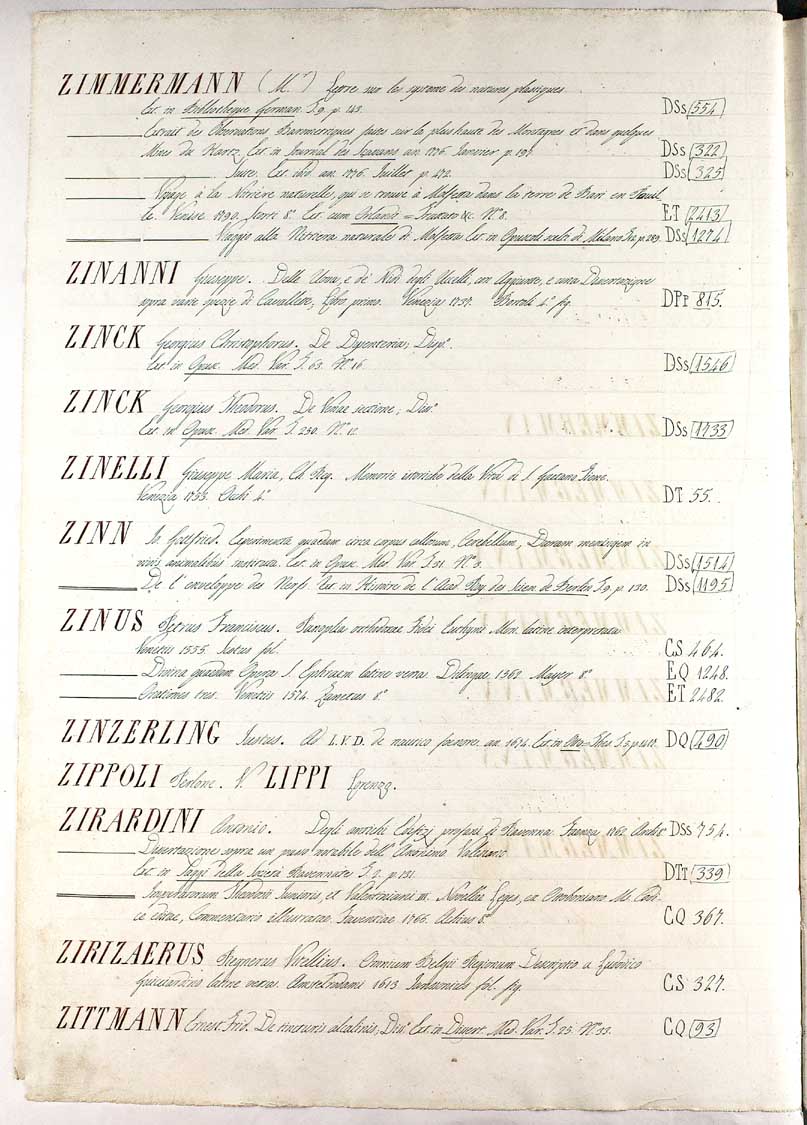 ZIMMERMANN (M.r) Lettre sur les systeme des natures plastiques
Est. in Bibliotheque German. T. 9. p. 143. DSs 554
Extrait des Observations Barometriques faites sur la plus haute des Montagnes et dans quelques
Mines du Hartz. Est. in Journal des Savans an. 1776. Janvier p. 197. DSs 322
Suite. Est. ibid. an. 1776. Juillet p. 472. DSs 325
Voyage à la Nitriere naturelle, qui se trouve à Molfetta dans la terre de Bari en Pouil-
le. Venise 1790. 8.o Est. cum Orlandi = &c. N.o 8. ET 2413
Viaggio alla Nitriera naturale di Molfetta. Est. in Opuscoli scelti di Milano p. 289. DSs 1274
ZINANNI Giuseppe. Delle Uova, e dei Nidi degli Uccelli, con Aggiunte, e una Dissertazione
sopra varie spezie di Cavallette; Libro primo. Venezia 1737. Bortoli 4.o fig. DPp 815.
ZINCK Georgius Christophorus. De Dysenteria; Disp.o
Est. in Opusc. Med. Var. T. 63. N.o 16. DSs 1546
ZINCK Georgius Theodorus. De Venae sectione; Diss.o
Est. in Opusc. Med. Var. T. 250. N.o 12. DSs 1733
ZINELLI Giuseppe Maria, Ch. Reg. Memorie istoriche della Vita di S. Gaetano Tiene.
Venezia 1753. Occhi 4.o DT 55.
ZINN Jo. Gotfried. Experimenta quaedam circa corpus callosum, Cerebellum, Duram meningem in
vivis animalibus instituta. Est. in Opusc. Med. Var. T. 31. N.o 3. DSs 1514
De l'enveloppe des Nerfs. Est. in Histoire de l'Acad. Roy. des Scien. de Berlin T. 9. p. 130. DSs 1195
ZINUS Petrus Franciscus. Panoplia orthodoxae Fidei Euthymii Mon. latine interpretata.
Venetiis 1555. fol. CS 464.
Divina quaedam Opera S. Ephraem latine versa. Dilingae 1562. Mayer 8.o EQ 1248.
Orationes tres. Venetiis 1574. Zanettus 8.o ET 2482.
ZINZERLING Justus. Ad L.V.D. de nautico foenore. an. 1674. Est. in Otto = Thes. DQ 490
ZIPPOLI Perlone. V. LIPPI Lorenzo.
ZIRARDINI Antonio. Degli antichi Edifizj profani di Ravenna. Faenza 1762. Archi 8.o DSs 754.
Dissertazione sopra un passo notabile dell'Anonimo Valesiano
Est. in Saggi della Società Ravennate T. 2. p. 131. DTt 339
Imperatorum Theodosii Junioris, et Valentiniani III. Novellae Leges, ex Ottoboniano Ms. Codi-
ce editae, Commentario illustratae. Faventiae 1766. Archius 8.o CQ 367.
ZIRIZAERUS Regnerus Vitellius. Omnium Belgii Regionum Descriptio a Ludovico
Guicciardino latine versa. Amstelodami 1613. Janssonius fol. fig. CS 327.
ZITTMANN Ernest. Frid. De tincturis alcalinis, Diss.o Est. in Dissert. Med. Var. T. 25. N.o 33. CQ 93